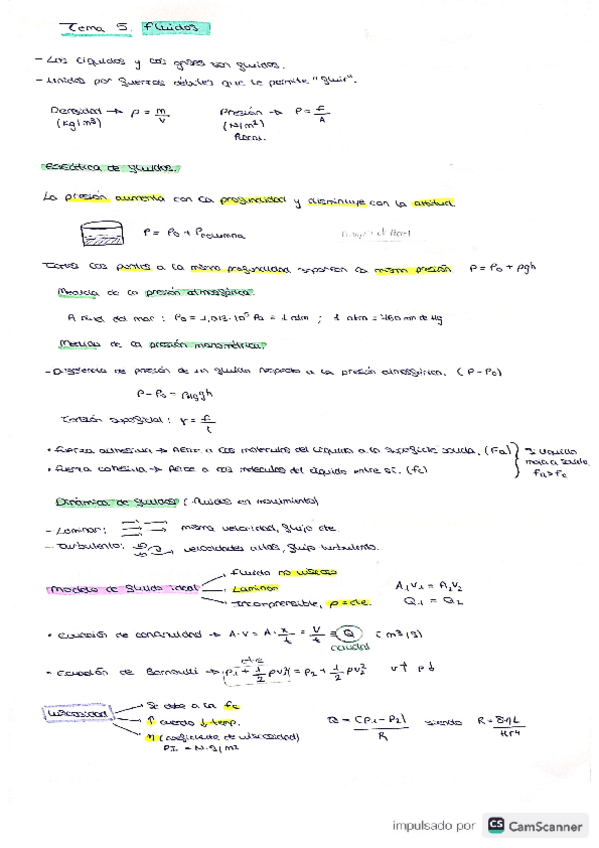 Tema 5. Fluidos
- Los líquidos y los gases son fluidos.
- Unidos por fuerzas débiles que le permite "fluir".
Densidad → ρ = m/V   Presión → P = F/A
(kg/m³)   (N/m²)
Pascal.
Estática de fluidos.
La presión aumenta con la profundidad y disminuye con la altitud.
P = P₀ + Pcolumna
Todos los puntos a la misma profundidad soportan la misma presión P = P₀ + ρgh
Medida de la presión atmosférica.
A nivel del mar: P₀ = 1,013·10⁵ Pa = 1 atm ; 1 atm = 760 mm de Hg
Medida de la presión manométrica.
- Diferencia de presión de un fluido respecto a la presión atmosférica. (P-P₀)
P-P₀ = ρHg gh
Tensión superficial: γ = F/l
• Fuerza adhesiva → Atrae a las moléculas del líquido a la superficie sólida. (Fa) } Si líquido
• Fuerza cohesiva → Atrae a las moléculas del líquido entre sí. (fc) } moja a sólido
Fa>Fc
Dinámica de fluidos (fluidos en movimiento)
- Laminar: misma velocidad, flujo cte.
- Turbulento: velocidades altas, flujo turbulento.
Modelo de fluido ideal
Fluido no viscoso
Laminar
Incompresible, ρ = cte.
A₁V₁ = A₂V₂
Q₁ = Q₂
• Ecuación de continuidad → A·V = A·x/t = V/t = Q (m³/s)
caudal
cte
- Ecuación de Bernoulli → p₁ + 1/2 ρv₁² = p₂ + 1/2 ρv₂²   v↑ p↓
Viscosidad
Se debe a la fc
↑ cuando ↓ temp.
η (coeficiente de viscosidad)
S.I. = N·s/m²
Q = (P₁-P₂)/R siendo R = 8ηL/πr⁴
impulsado por CS CamScanner